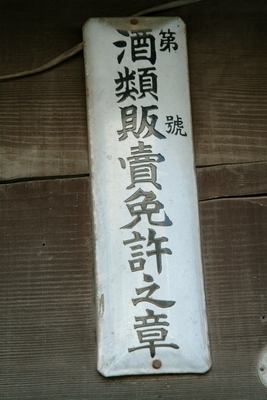 第 號
酒類販賣免許之章